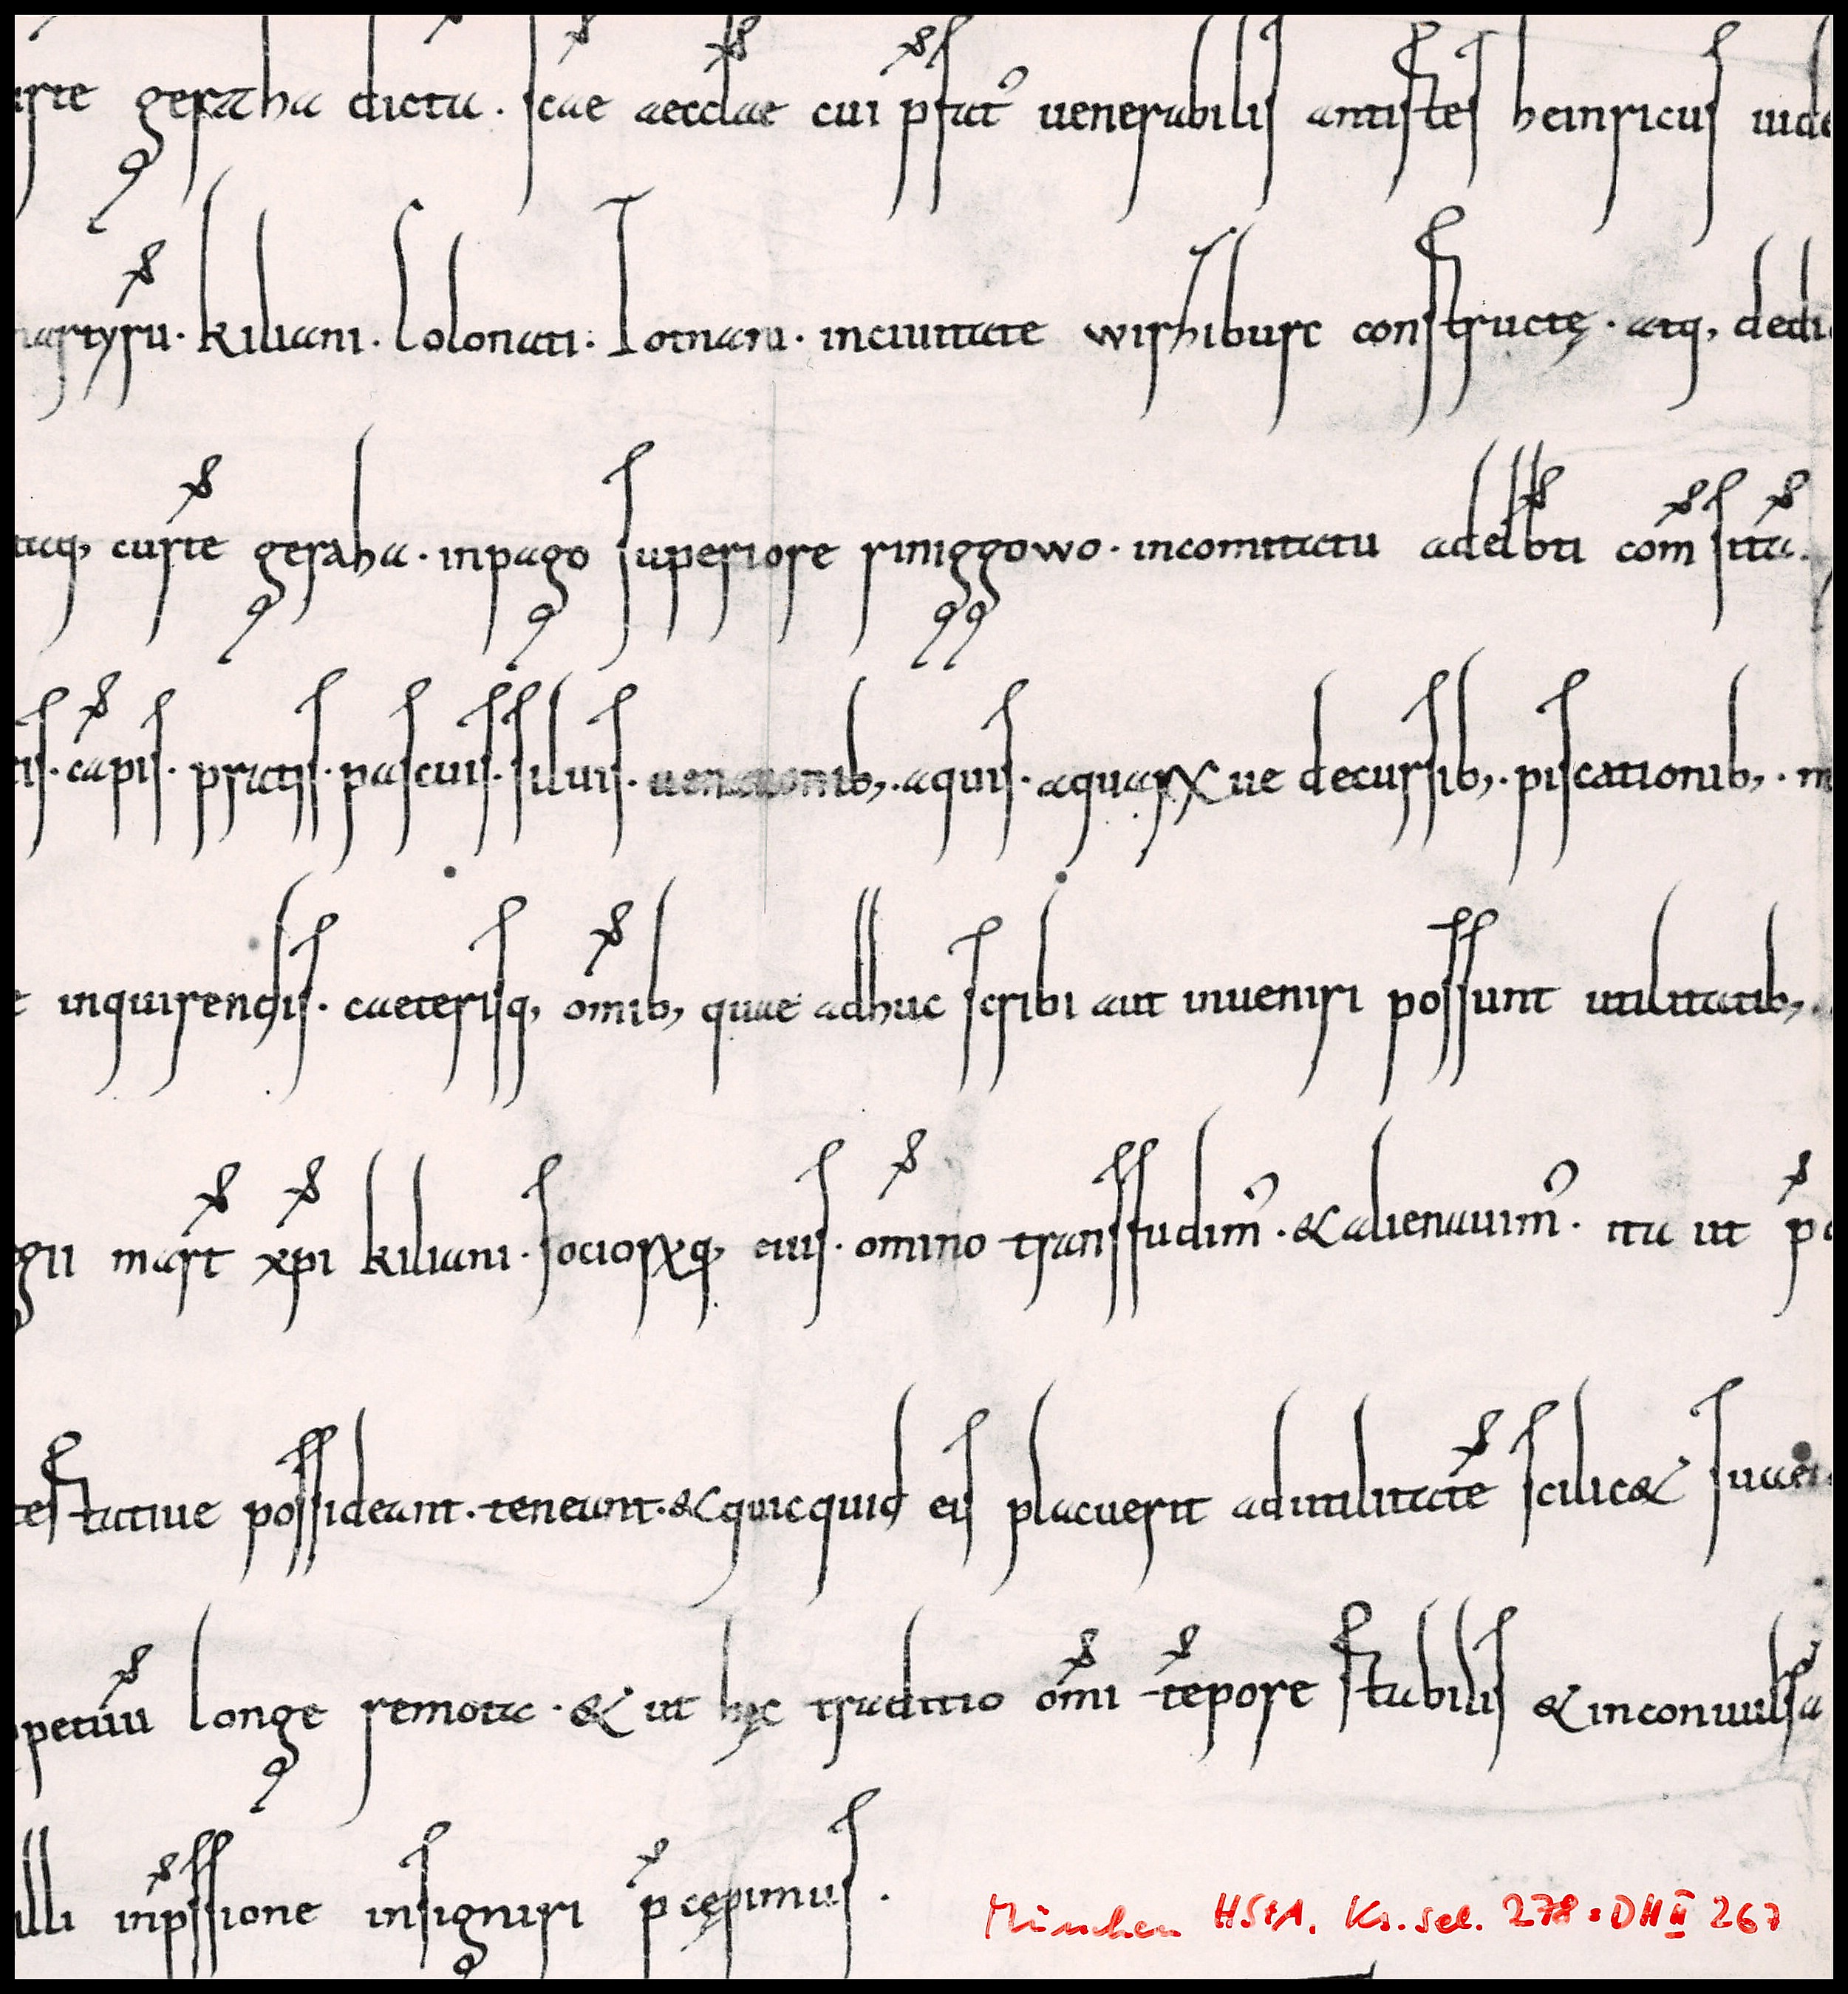 geraha dicta. scae aecclae cui psidt᾽ uenerabilis antistes heinricus
martyrū. kiliani. Lolonati. Totnani. inciuitate wirziburc constructę. atq;
curte geraha. inpago superiore riniggowo. incomitatu adelbti com sita.
capis. pratis. pascuis. siluis. uenationib;. aquis. aquarū ue decursib;. piscationib;.
inquirendis. caeterisq; omīb; quae adhuc scribi aut inueniri possunt utilitatib;.
mart xpi kiliani. sociorūq; eius. omīno transfudim᾽. & alienauim᾽. ita ut
possideant. teneant. & quicquid eis placuerit adutilitatē scilic&
longe remota. & ut hęc traditio omī tēpore stabilis & inconuulsa
inp̄ssione insigniri p̄cępimus.
München HStA. Ks. sel. 278 = DH II 267